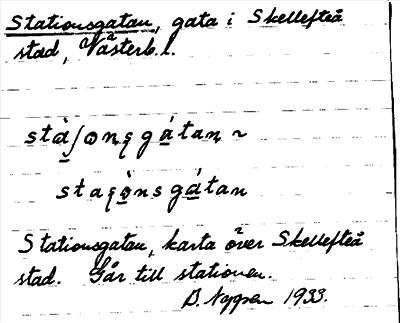 Stationsgatan, gata i Skellefteå
stad, Västerb. l.
stà̱ʃo̱nʂgá̱taṇ ~
staʂò̱nsgá̱tan
Stationsgatan, karta över Skellefteå
stad. Går till stationen.
B. Nygren 1933.